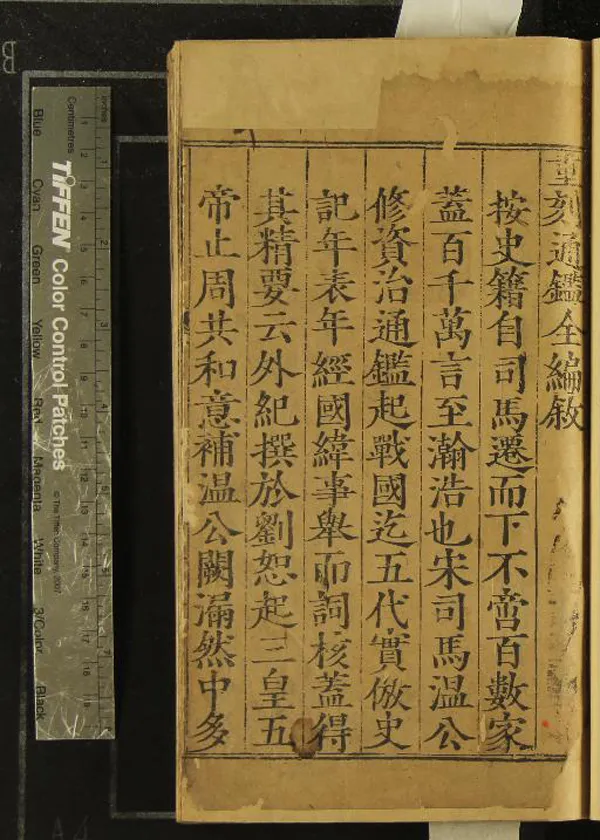 重刻通鑑全編敘
按史籍自司馬遷而下不啻百數家
蓋百千萬言至瀚浩也宋司馬温公
修資治通鑑起戰國迄五代實倣史
記年表年經國緯事舉而詞核蓋得
其精要云外紀撰於劉恕起三皇五
帝止周共和意補温公闕漏然中多
inches
Centimetres
TIFFEN Color Control Patches
© The Tiffen Company, 2007
Blue
Cyan
Green
Yellow
Red
Magenta
White
3/Color
Black